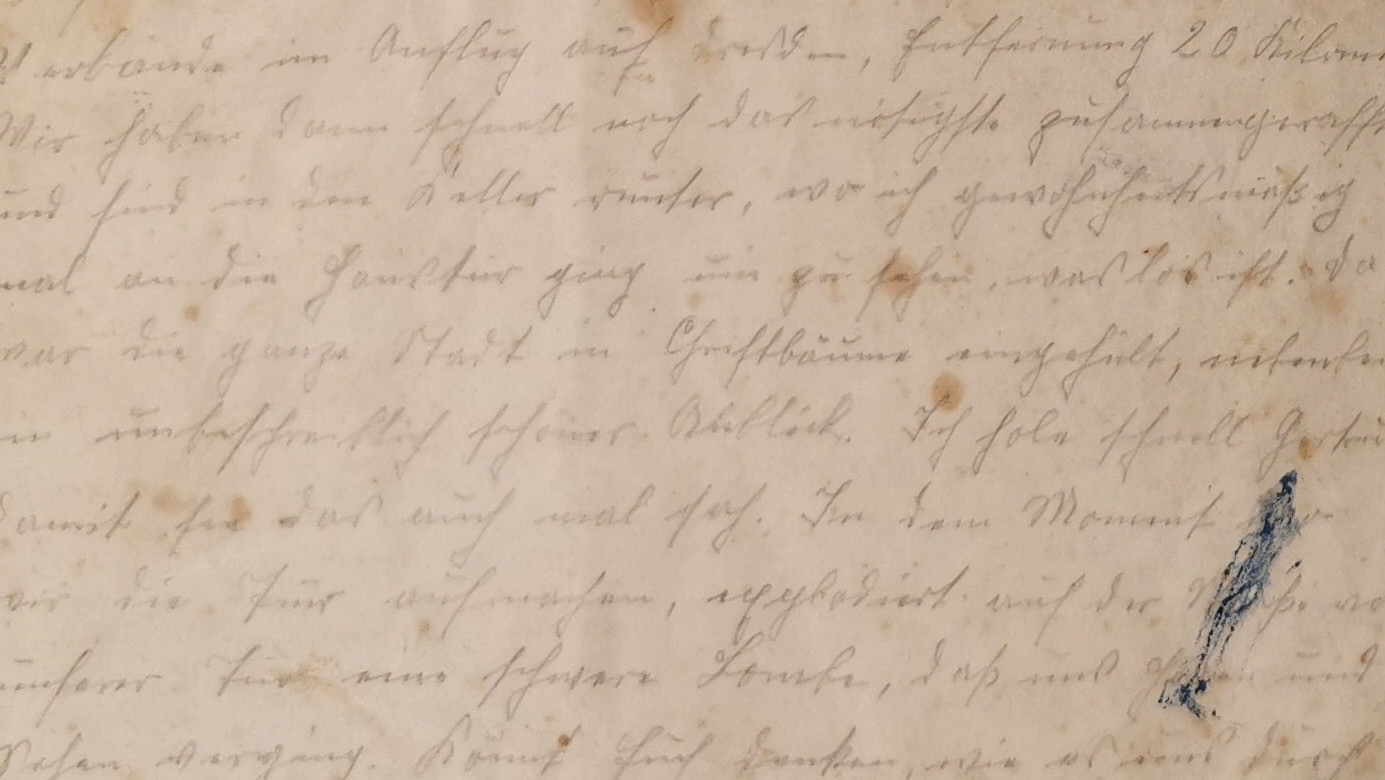 Verbände im Anflug auf Dresden, Entfernung 20 Kilom
Wir haben dann schnell noch das nötigste zusammengerafft
und sind in den Keller runter, wo ich gewohnheitsmäßig
mal an die Haustür ging um zu sehen, was los ist. Da
war die ganze Stadt in Christbäume eingehült, nebenbei
ein unbeschreiblich schöner Anblick. Ich hole schnell
damit sie das auch mal sah. In dem Moment wo
wir die Tür aufmachen, explodiert auf der Straße vo
unserer Tür eine schwere Bombe, daß uns Hören und
Sehen verging. Könnt Euch denken, wie es uns durch